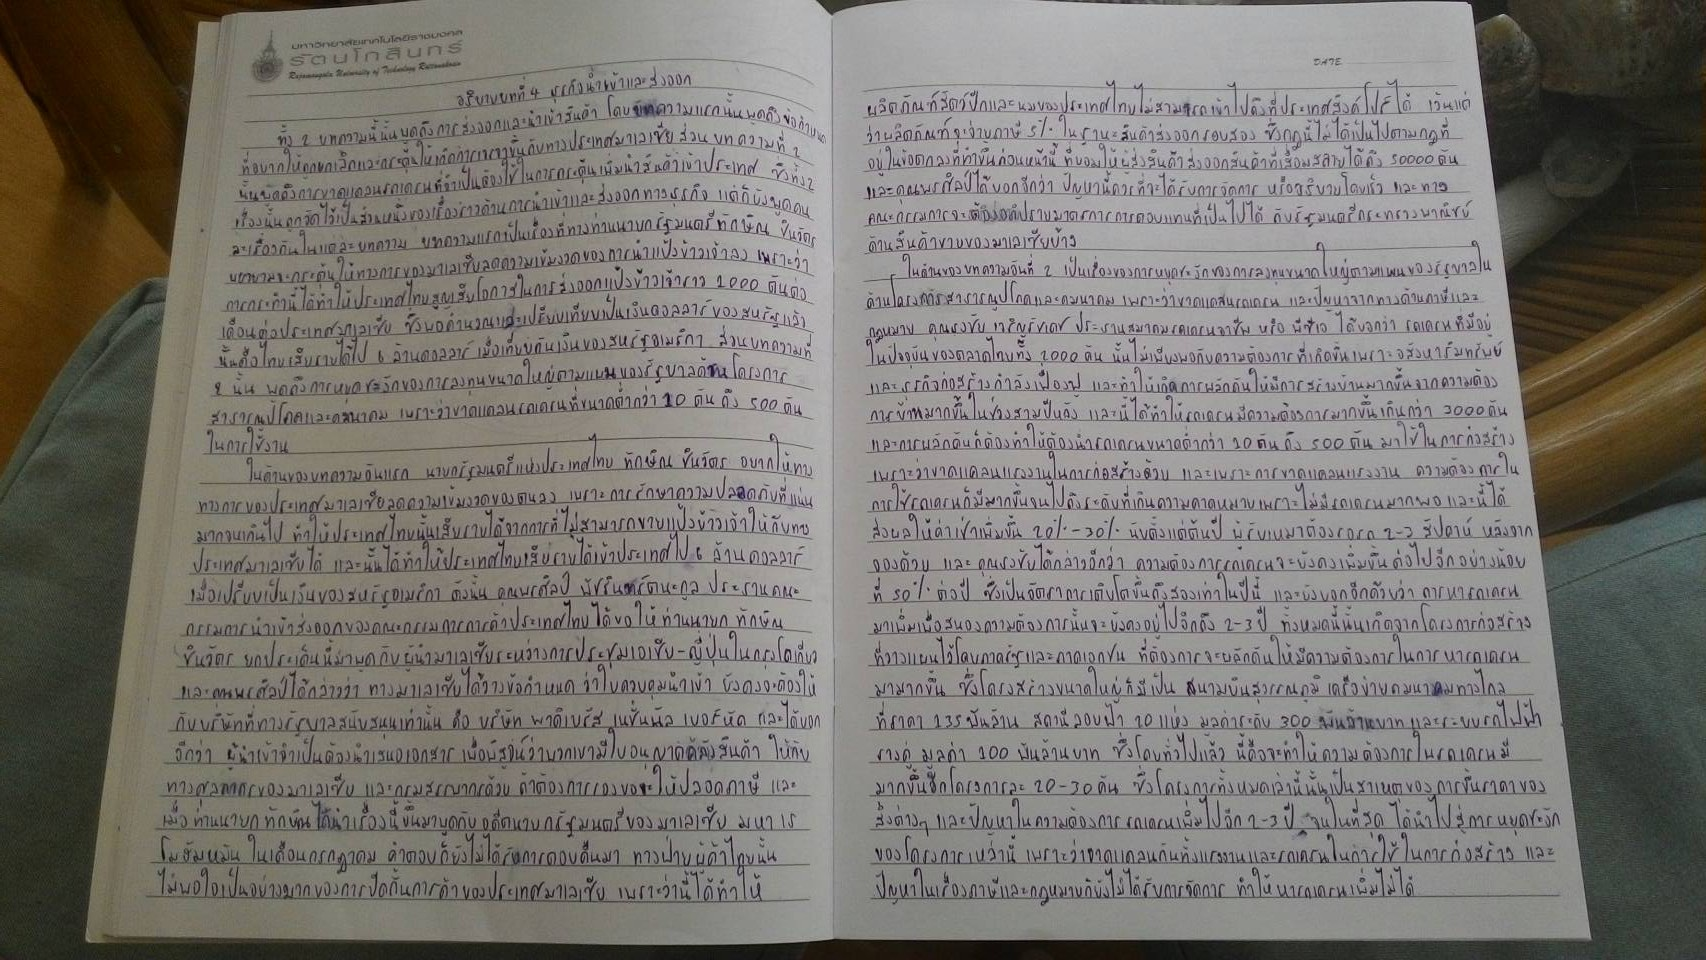 มหาวิทยาลัยเทคโนโลยีราชมงคล
รัตนโกสินทร์
Rajamangala University of Technology Rattanakosin
อธิบายบทที่ 4 ธุรกิจนำเข้าและส่งออก
ทั้ง 2 บทความนี้นั้นพูดถึงการส่งออกและนำเข้าสินค้า โดยบทความแรกนั้นพูดถึงข้อกำหนด
ที่อยากให้ถูกยกเลิกและกระตุ้นให้เกิดการเจรจาขึ้นกับทางประเทศมาเลเซีย ส่วนบทความที่ 2
นั้นพูดถึงการขาดแคลนรถเครนที่จำเป็นต้องใช้ในการกระตุ้นเพิ่มนำสินค้าเข้าประเทศ ซึ่งทั้ง 2
เรื่องนั้นถูกจัดไว้เป็นส่วนหนึ่งของเรื่องราวด้านการนำเข้าและส่งออกทางธุรกิจ แต่ก็ยังพูดคน
ละเรื่องกันในแต่ละบทความ บทความแรกเป็นเรื่องที่ทางท่านนายกรัฐมนตรีทักษิณ ชินวัตร
พยายามจะกระตุ้นให้ทางการของมาเลเซียลดความเข้มงวดของการนำแป้งข้าวเจ้าลง เพราะว่า
การกระทำนี้ได้ทำให้ประเทศไทยสูญเสียโอกาสในการส่งออกแป้งข้าวเจ้าราว 2000 ตันต่อ
เดือนต่อประเทศมาเลเซีย ซึ่งพอคำนวณและเปรียบเทียบเป็นเงินดอลลาร์ของสหรัฐแล้ว
นั้นคือไทยเสียรายได้ไป 6 ล้านดอลลาร์ เมื่อเทียบกับเงินของสหรัฐอเมริกา ส่วนบทความที่
2 นั้น พูดถึงการหยุดชะงักของการลงทุนขนาดใหญ่ตามแผนของรัฐบาลด้านโครงการ
สาธารณูปโภคและคมนาคม เพราะว่าขาดแคลนรถเครนที่ขนาดต่ำกว่า 10 ตัน ถึง 500 ตัน
ในการใช้งาน
ในด้านของบทความอันแรก นายกรัฐมนตรีแห่งประเทศไทย ทักษิณ ชินวัตร อยากให้ทาง
ทางการของประเทศมาเลเซียลดความเข้มงวดของตนลง เพราะการรักษาความปลอดภัยที่แน่น
มากจนเกินไป ทำให้ประเทศไทยนั้นเสียรายได้จากการที่ไม่สามารถขายแป้งข้าวเจ้าให้กับทาง
ประเทศมาเลเซียได้ และนั้นได้ทำให้ประเทศไทยเสียรายได้เข้าประเทศไป 6 ล้านดอลลาร์
เมื่อเปรียบเป็นเงินของสหรัฐอเมริกา ดังนั้น คุณพรศิลป์ พัชรินทร์ตนะกูล ประธานคณะ
กรรมการนำเข้าส่งออกของคณะกรรมการการค้าประเทศไทย ได้ขอให้ท่านนายก ทักษิณ
ชินวัตร ยกประเด็นนี้มาพูดกับผู้นำมาเลเซียระหว่างการประชุมเอเชีย-ญี่ปุ่นในกรุงโตเกียว
และคุณพรศิลป์ได้กล่าวว่า ทางมาเลเซียได้วางข้อกำหนด ว่าใบควบคุมนำเข้า ยังคงจะต้องให้
กับบริษัทที่ทางรัฐบาลสนับสนุนเท่านั้น คือ บริษัท พาดิเบรัส เนชั่นนัล เบอร์หัด และได้บอก
อีกว่า ผู้นำเข้าจำเป็นต้องนำเสนอเอกสาร เพื่อพิสูจน์ว่าพวกเขามีใบอนุญาต สินค้า ให้กับ
ทางศุลกากรของมาเลเซีย และกรมสรรพากรด้วย ถ้าต้องการร้องขอจะให้ปลอดภาษี และ
เมื่อท่านนายก ทักษิณ ได้นำเรื่องนี้ขึ้นมาพูดกับ อดีตนายกรัฐมนตรีของมาเลเซีย มหาเธ
โมฮัมหมัน ในเดือนกรกฎาคม คำตอบก็ยังไม่ได้รับการตอบคืนมา ทางฝ่ายผู้ค้าไทยนั้น
ไม่พอใจเป็นอย่างมากของการปิดกั้นการค้าของประเทศมาเลเซีย เพราะว่านี้ได้ทำให้
DATE
ผลิตภัณฑ์สัตว์ปีกและนมของประเทศไทยไม่สามารถเข้าไปถึงที่ประเทศสิงค์โปร์ได้ เว้นแต่
ว่าผลิตภัณฑ์จะจ่ายภาษี 5% ในฐานะสินค้าส่งออกรอบสอง ซึ่งกฎนี้ไม่ได้เป็นไปตามกฎที่
อยู่ในข้อตกลงที่ทำขึ้นก่อนหน้านี้ ที่ยอมให้ผู้ส่งสินค้าส่งออกสินค้าที่เสื่อมสลายได้ถึง 50000 ตัน
และคุณพรศิลป์ได้บอกอีกว่า ปัญหานี้ควรที่จะได้รับการจัดการ หรืออธิบายโดยเร็ว และทาง
คณะกรรมการจะต้องอภิปรายมาตรการการตอบแทนที่เป็นไปได้ กับรัฐมนตรีกระทรวงพาณิชย์
ด้านสินค้าขายของมาเลเซียบ้าง
ในด้านของบทความอันที่ 2 เป็นเรื่องของการหยุดชะงักของการลงทุนขนาดใหญ่ตามแผนของรัฐบาลใน
ด้านโครงการสาธารณูปโภคและคมนาคม เพราะว่าขาดแคลนรถเครน และปัญหาจากทางด้านภาษีและ
กฎหมาย คุณธงชัย เจริญรัชเดช ประธานสมาคมรถเครนอาชีพ หรือ พีซีเอ ได้บอกว่า รถเครนที่มีอยู่
ในปัจจุบันของตลาดไทยทั้ง 2000 คัน นั้นไม่เพียงพอกับความต้องการที่เกิดขึ้นเพราะ อสังหาริมทรัพย์
และธุรกิจก่อสร้างกำลังเฟื่องฟู และทำให้เกิดการผลักดันให้มีการสร้างบ้านมากขึ้นจากความต้อง
การบ้านมากขึ้นในช่วงสามปีหลัง และนี้ได้ทำให้รถเครนมีความต้องการมากขึ้นเกินกว่า 3000 คัน
และการผลักดันก็ต้องทำให้ต้องนำรถเครนขนาดต่ำกว่า 10 ตัน ถึง 500 ตัน มาใช้ในการก่อสร้าง
เพราะว่าขาดแคลนแรงงานในการก่อสร้างด้วย และเพราะการขาดแคลนแรงงาน ความต้องการใน
การใช้รถเครนก็มีมากขึ้นจนไปถึงระดับที่เกินความคาดหมายเพราะไม่มีรถเครนมากพอ และนี้ได้
ส่งผลให้ค่าเช่าเพิ่มขึ้น 20%-30% นับตั้งแต่ต้นปี ผู้รับเหมาต้องรอรถ 2-3 สัปดาห์ หลังจาก
จองด้วย และ คุณธงชัยได้กล่าวอีกว่า ความต้องการรถเครนจะยังคงเพิ่มขึ้นต่อไปอีกอย่างน้อย
ที่ 50% ต่อปี ซึ่งเป็นอัตราการเติบโตขึ้นถึงสองเท่าในปีนี้ และยังบอกอีกด้วยว่า การหารถเครน
มาเพิ่มเพื่อสนองความต้องการนั้นจะยังคงอยู่ไปอีกถึง 2-3 ปี ทั้งหมดนี้นั้นเกิดจากโครงการก่อสร้าง
ที่วางแผนไว้โดยภาครัฐและภาคเอกชน ที่ต้องการจะผลักดันให้มีความต้องการในการหารถเครน
มามากขึ้น ซึ่งโครงสร้างขนาดใหญ่ก็มีเป็น สนามบินสุวรรณภูมิ เครือข่ายคมนาคมทางไกล
ที่ราคา 135 พันล้าน สถานีลอยฟ้า 10 แห่ง มูลค่าระดับ 300 พันล้านบาท และระบบรถไฟฟ้า
รางคู่ มูลค่า 100 พันล้านบาท ซึ่งโดยทั่วไปแล้ว นี้คือจะทำให้ความต้องการในรถเครนมี
มากขึ้นอีกโครงการละ 20-30 คัน ซึ่งโครงการทั้งหมดเหล่านี้นั้นเป็นสาเหตุของการขึ้นราคาของ
สิ่งต่างๆ และปัญหาในความต้องการรถเครนเพิ่มไปอีก 2-3 ปี จนในที่สุด ได้นำไปสู่การหยุดชะงัก
ของโครงการเหล่านี้ เพราะว่าขาดแคลนทั้งแรงงานและรถเครนในการใช้ในการก่อสร้าง และ
ปัญหาในเรื่องภาษีและกฎหมายก็ยังไม่ได้รับการจัดการ ทำให้หารถเครนเพิ่มไม่ได้